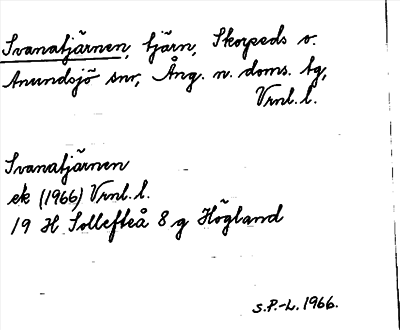 Svanatjärnen, tjärn, Skorpeds o.
Anundsjö snr, Ång. n. doms. tg,
Vrnl. l.
Svanatjärnen
ek (1966) Vrnl. l.
19 H Sollefteå 8 g Högland
S.P.-L. 1966.